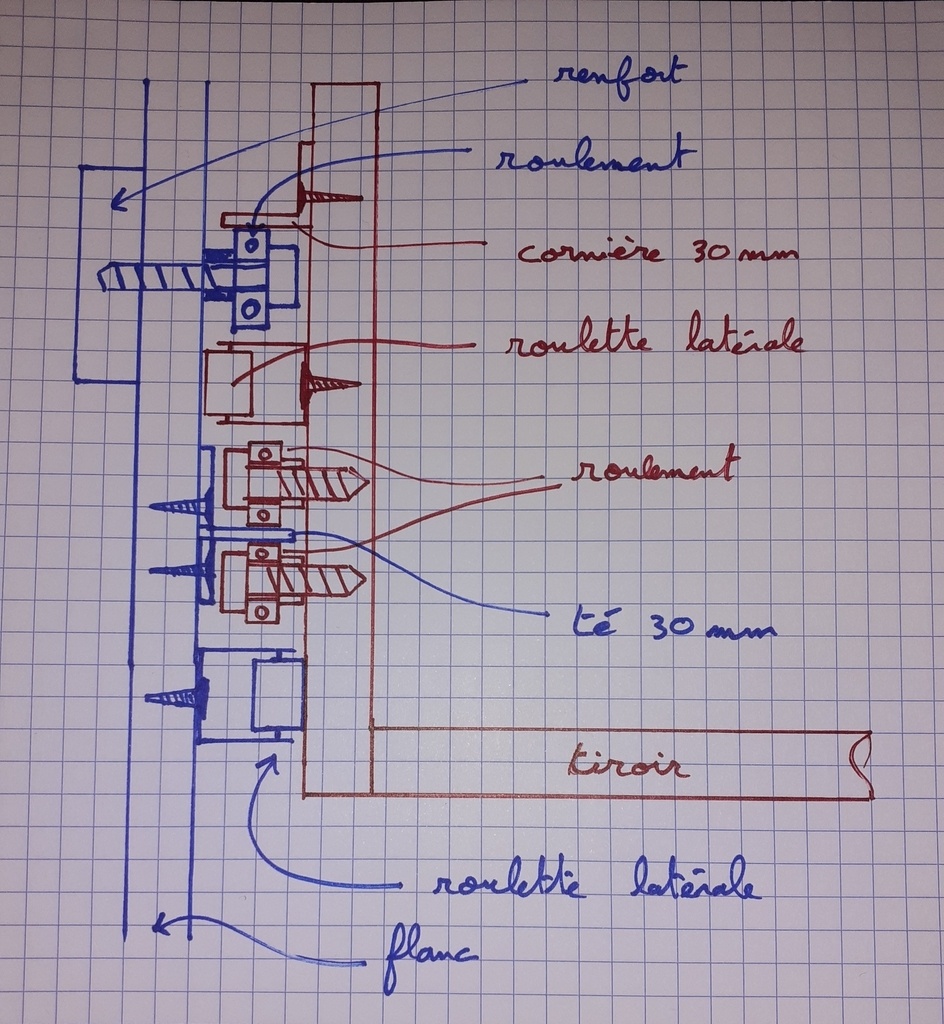 renfort
roulement
cornière 30 mm
roulette latérale
roulement
té 30 mm
tiroir
roulette latérale
flanc